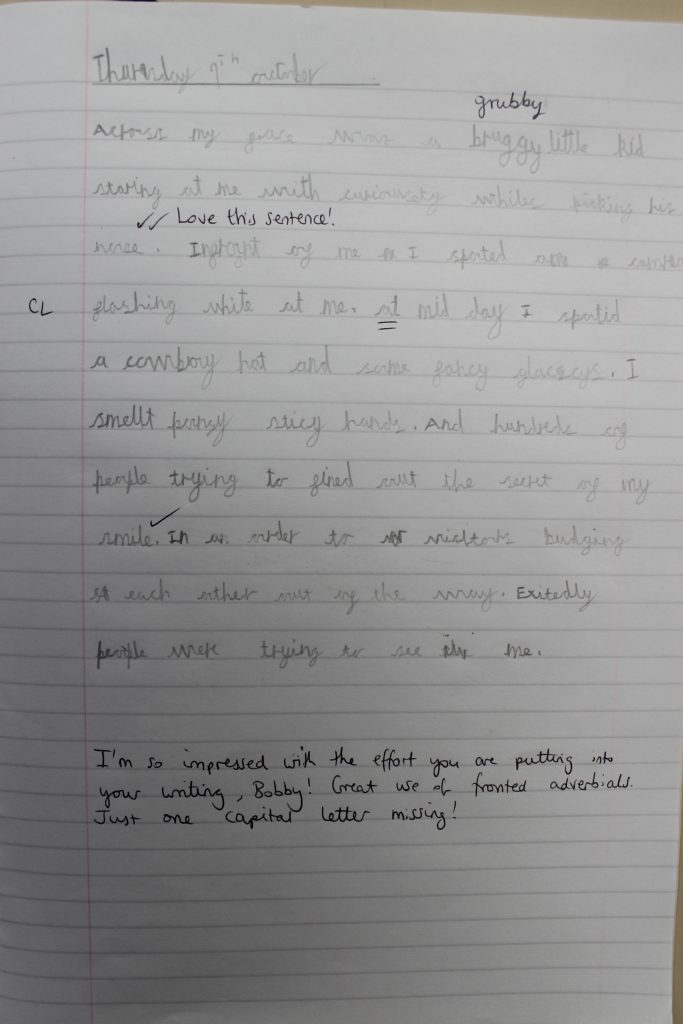 Thursday 9th october
grubby
Across my grace was a bruggy little kid
staring at me with curiousety whiles picking his
Love this sentence!
nose. Infront of me I spoted a
CL flashing white at me. at mid day I spotid
a cowboy hat and some fancy glaccys. I
smellt sticy hands. And hundreds of
people trying to fined out the secret of my
smile. In an order to visitors budging
each other out of the way. Exitedly
people were trying to see me.
I'm so impressed with the effort you are putting into
your writing, Bobby! Great use of fronted adverbials.
Just one capital letter missing!